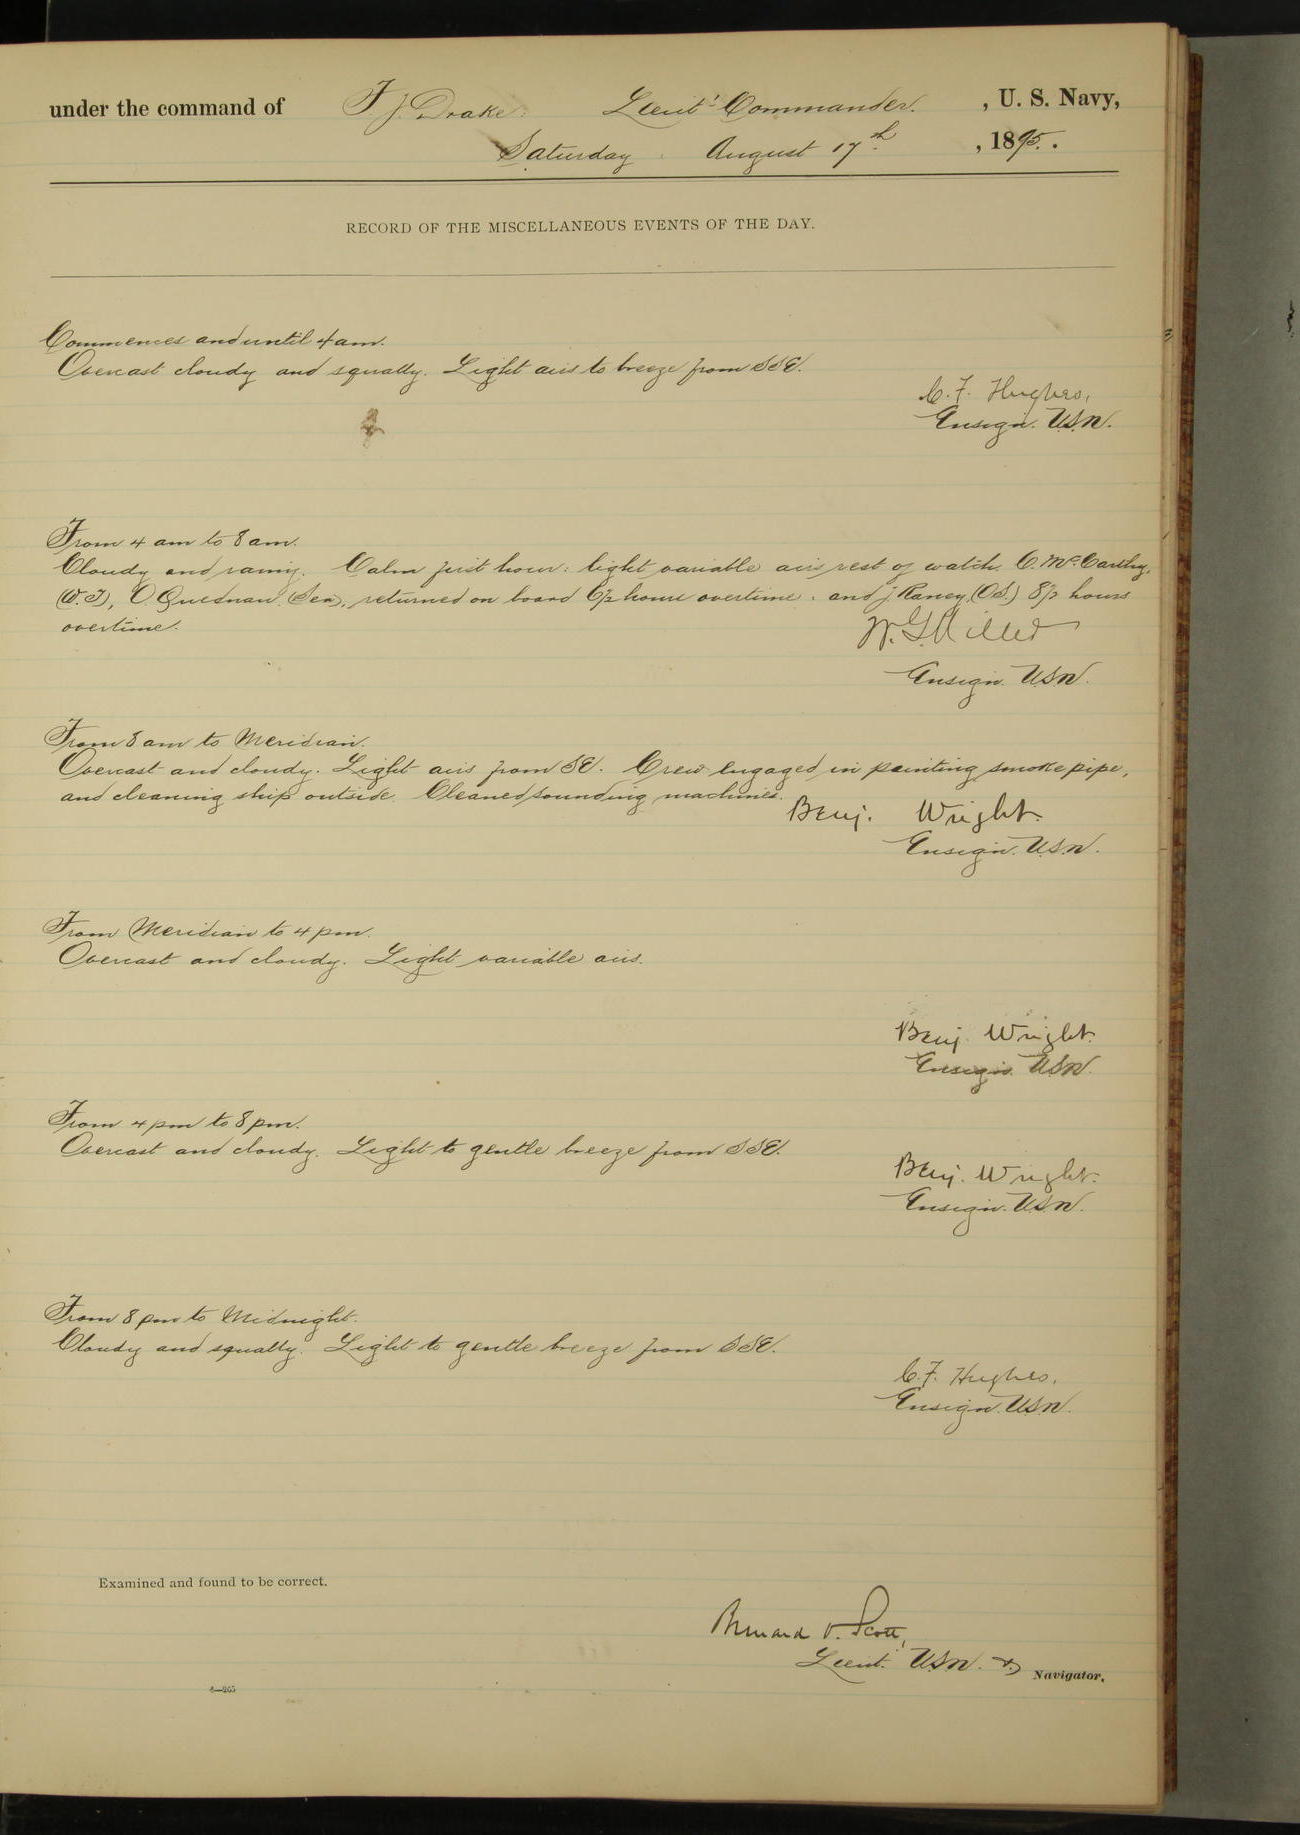 under the command of F. J. Drake. Lieut. Commander. , U. S. Navy,
Saturday August 17th , 1895.
RECORD OF THE MISCELLANEOUS EVENTS OF THE DAY.
Commences and until 4 am.
Overcast cloudy and squally. Light airs to breeze from SSE.
C. F. Hughes,
Ensign. U.S.N.
From 4 am to 8 am.
Cloudy and rainy. Calm first hour: light variable airs rest of watch. C. McCarthy,
(W.T), O. Quesnan (Sea), returned on board 6½ hours overtime: and J. Raney (OS) 8½ hours
overtime.
W. G. Miller
Ensign. U.S.N.
From 8 am to Meridian.
Overcast and cloudy. Light airs from SE. Crew engaged in painting smoke pipe,
and cleaning ship outside. Cleaned sounding machines.
Benj. Wright.
Ensign. U.S.N.
From Meridian to 4 pm.
Overcast and cloudy. Light variable airs.
Benj. Wright.
Ensign U.S.N.
From 4 pm to 8 pm.
Overcast and cloudy. Light to gentle breeze from SSE.
Benj. Wright.
Ensign. U.S.N.
From 8 pm to Midnight.
Cloudy and squally. Light to gentle breeze from SSE.
C. F. Hughes,
Ensign. U.S.N.
Examined and found to be correct.
Bernard O. Scott,
Lieut. U.S.N. & Navigator.